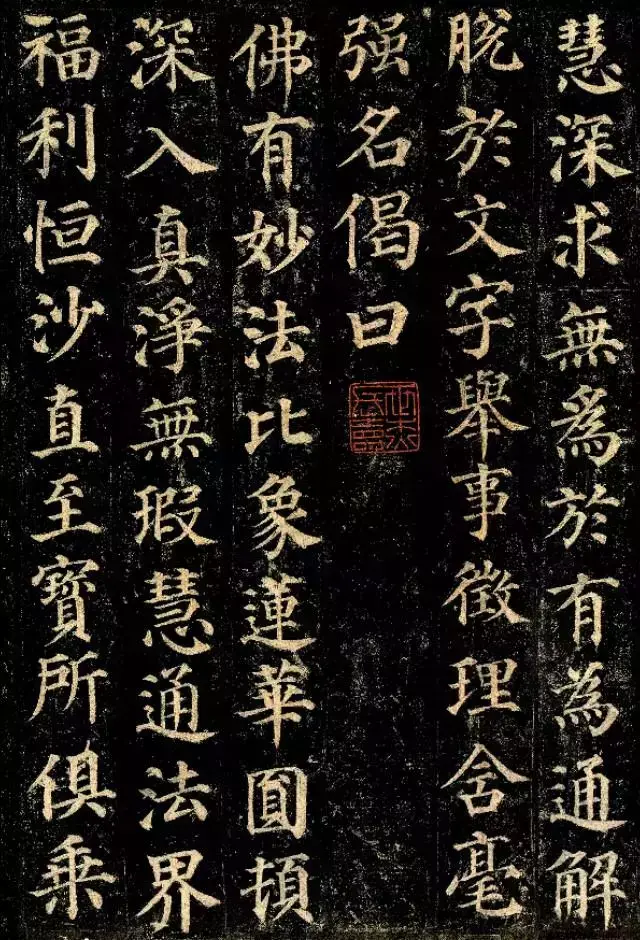 慧深求無爲於有為通解
脱於文字舉事徵理含毫
强名偈曰
佛有妙法比象蓮華圓頓
深入真淨無瑕慧通法界
福利恒沙直至寶所俱乘